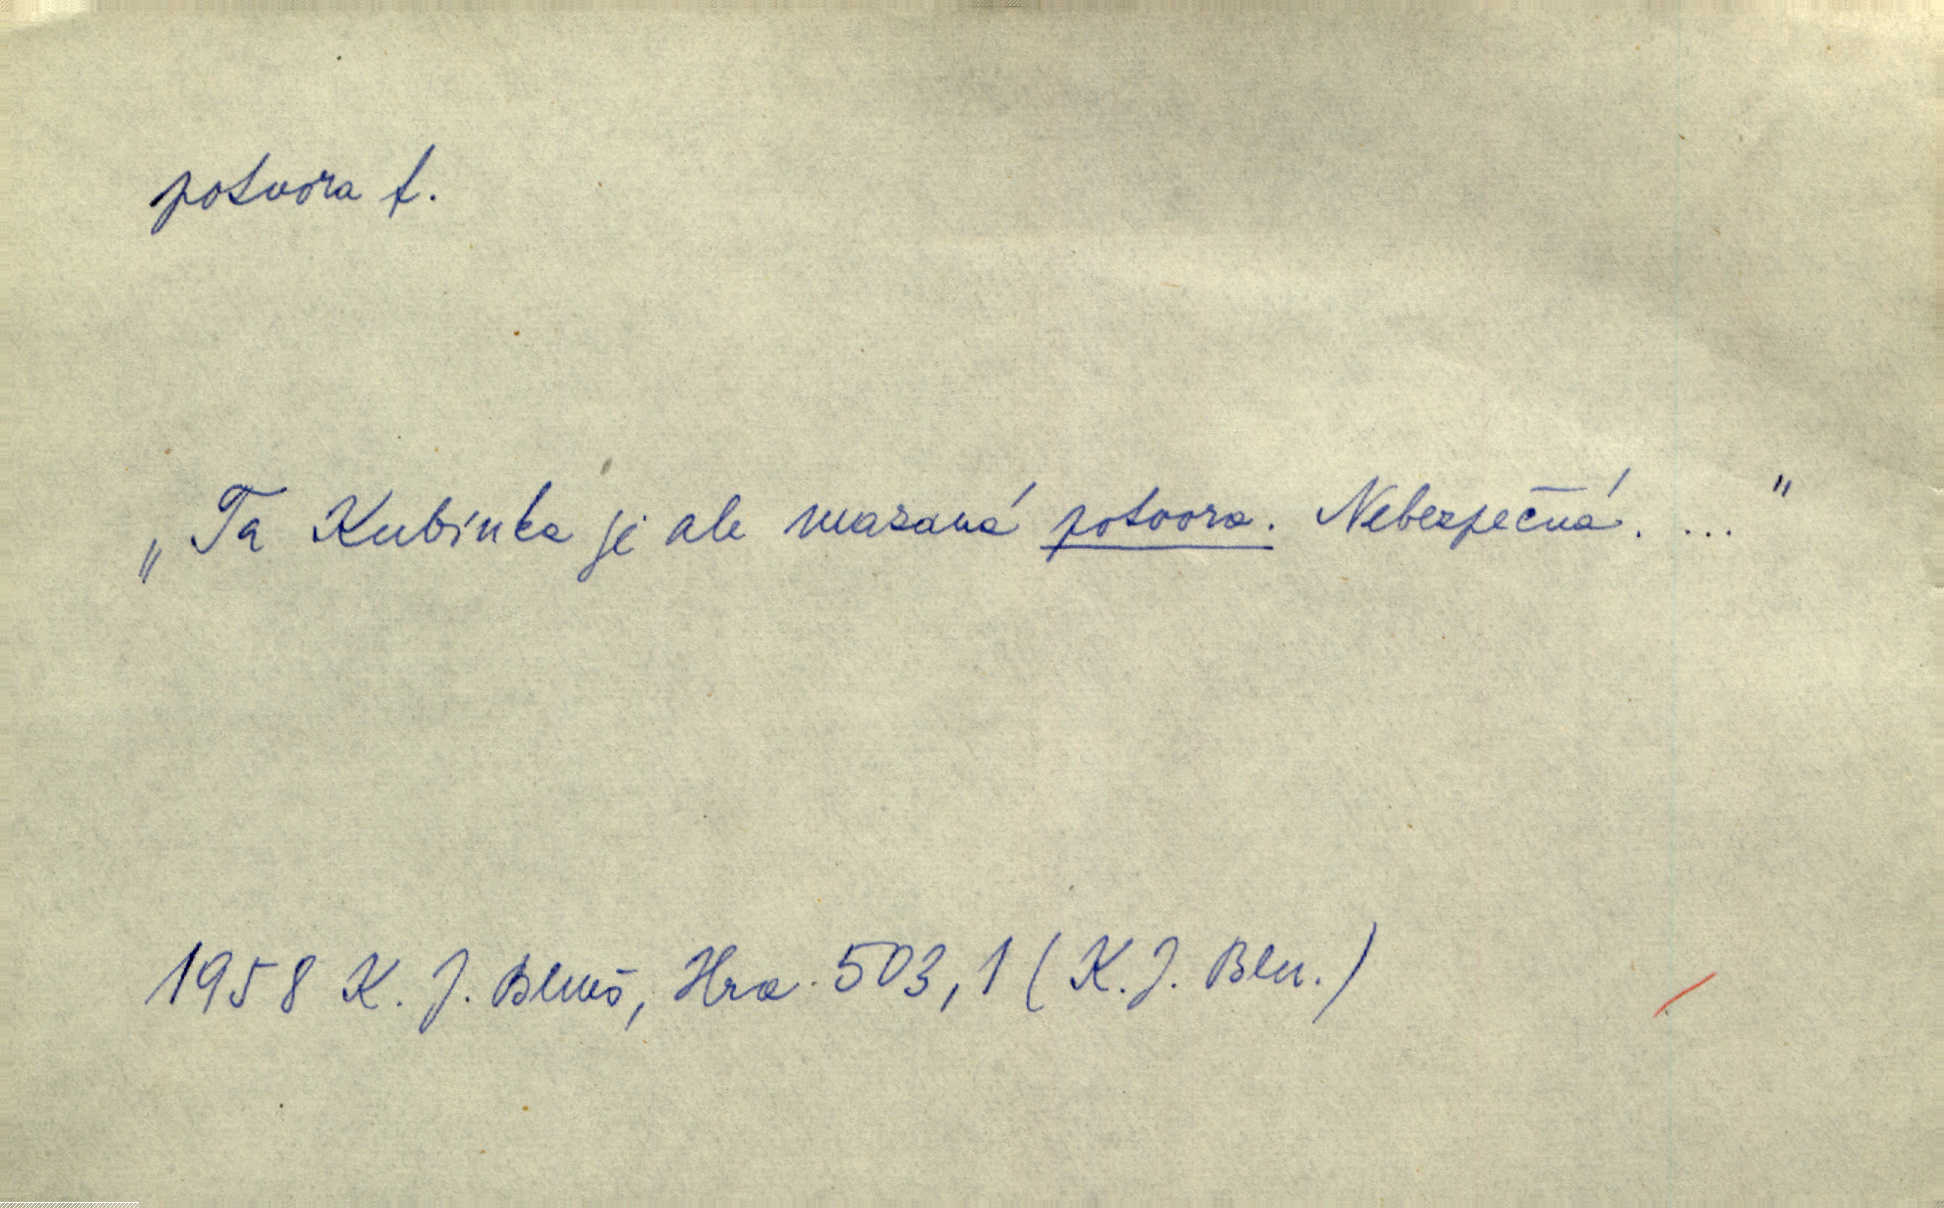 potvora f.
„Ta Kubinka je ale mazaná potvora. Nebezpečná. ..."
1958 K. J. Beneš, Hra 503,1 (K. J. Ben.)